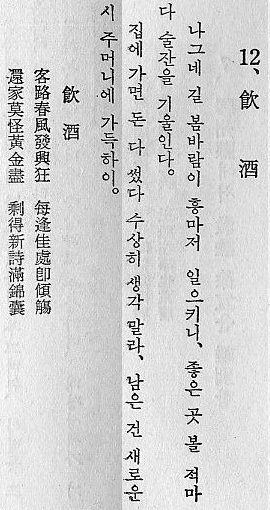 12、飮 酒
나그네 길 봄바람이 흥마저 일으키니、좋은 곳 볼 적마
다 술잔을 기울인다。
집에 가면 돈 다 썼다 수상히 생각 말라、남은 건 새로운
시 주머니에 가득하이。
飮 酒
客路春風發興狂 每逢佳處卽傾觴
還家莫怪黃金盡 剩得新詩滿錦囊